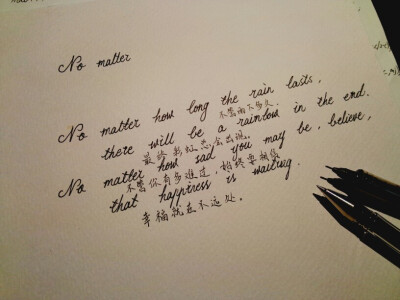 No matter
No matter how long the rain lasts,
不管雨下多久,
there will be a rainbow in the end.
最终彩虹总会出现。
No matter how sad you may be, believe,
不管你有多难过,始终要相信
that happiness is waiting.
幸福就在不远处。